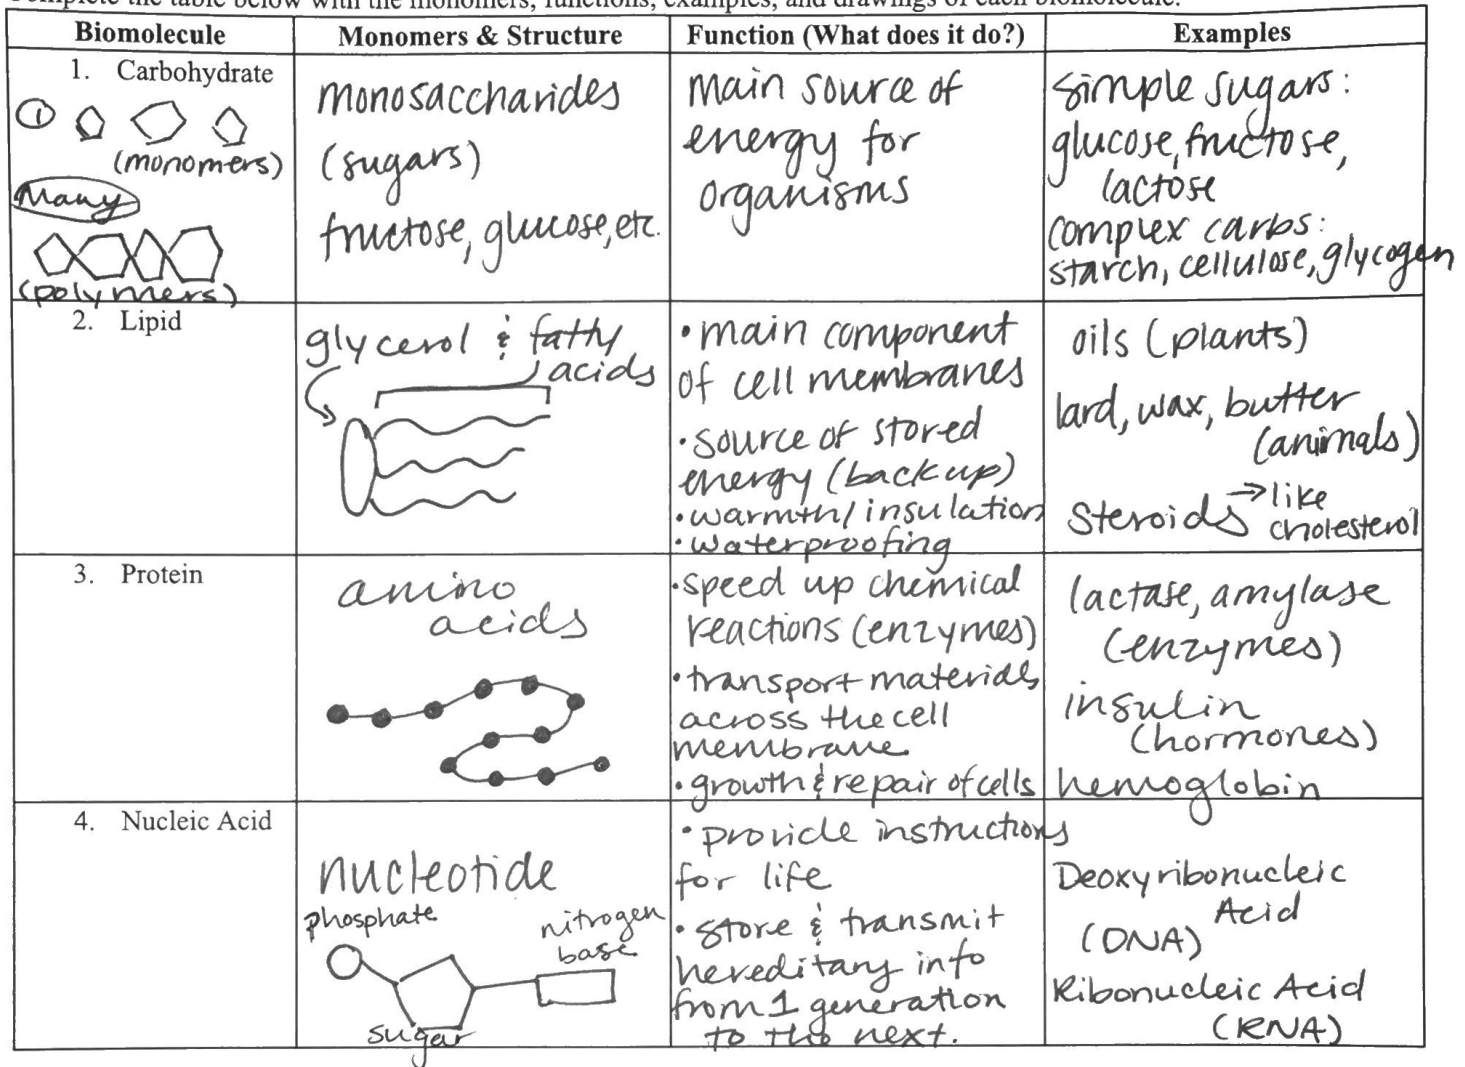 Complete the table below with the monomers, functions, examples, and drawings of each biomolecule.
Biomolecule
Monomers & Structure
Function (What does it do?)
Examples
1. Carbohydrate
①
(monomers)
Many
(polymers)
monosaccharides
(sugars)
fructose, glucose, etc.
Main source of
energy for
organisms
Simple sugars:
glucose, fructose,
lactose
complex carbs:
starch, cellulose, glycogen
2. Lipid
glycerol & fatty
acids
• main component
of cell membranes
• source of stored
energy (back up)
• warmth/insulation
• waterproofing
oils (plants)
lard, wax, butter
(animals)
Steroids → like
cholesterol
3. Protein
amino
acids
• speed up chemical
reactions (enzymes)
• transport materials
across the cell
membrane
• growth & repair of cells
lactase, amylase
(enzymes)
insulin
(hormones)
hemoglobin
4. Nucleic Acid
nucleotide
phosphate
nitrogen
base
sugar
• provide instructions
for life
• store & transmit
hereditary info
from 1 generation
to the next.
Deoxyribonucleic
Acid
(DNA)
Ribonucleic Acid
(RNA)